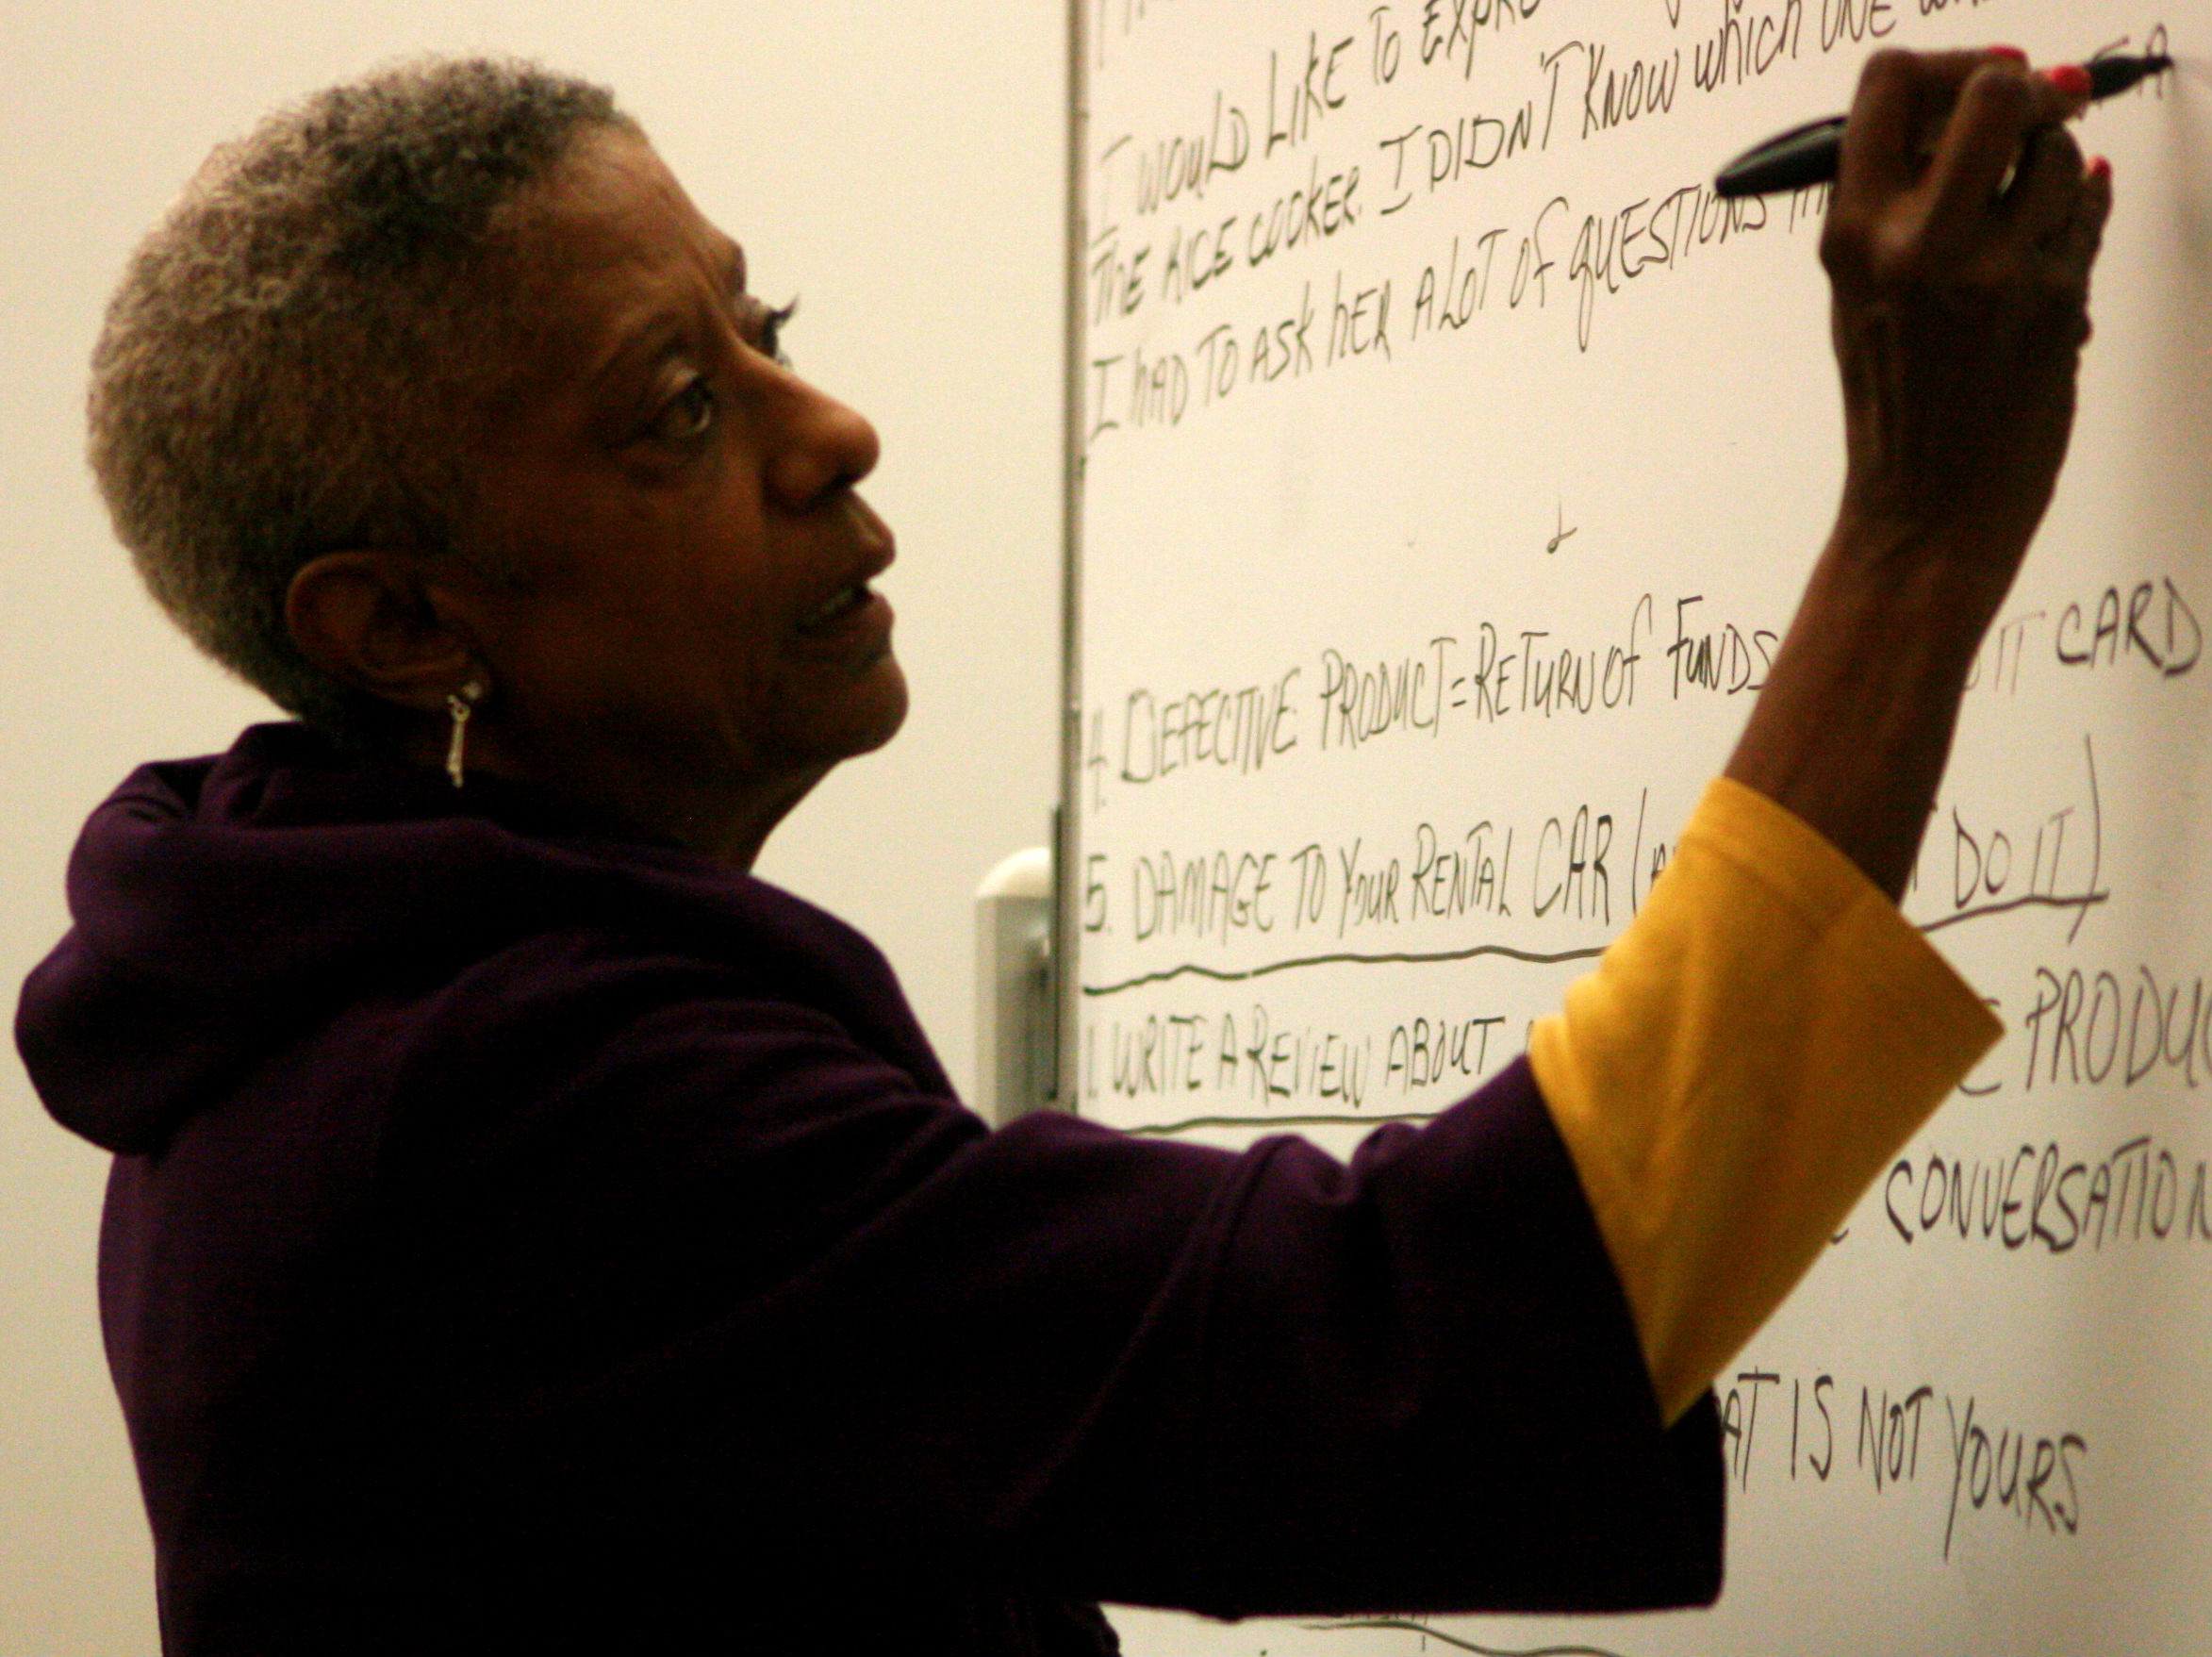 I WOULD LIKE TO
THE RICE COOKER. I DIDN'T KNOW WHICH ONE
I HAD TO ASK HER A LOT OF QUESTIONS
4. DEFECTIVE PRODUCT = RETURN OF FUNDS CARD
5. DAMAGE TO YOUR RENTAL CAR ( DO IT)
1. WRITE A REVIEW ABOUT
CONVERSATION
IS NOT YOURS